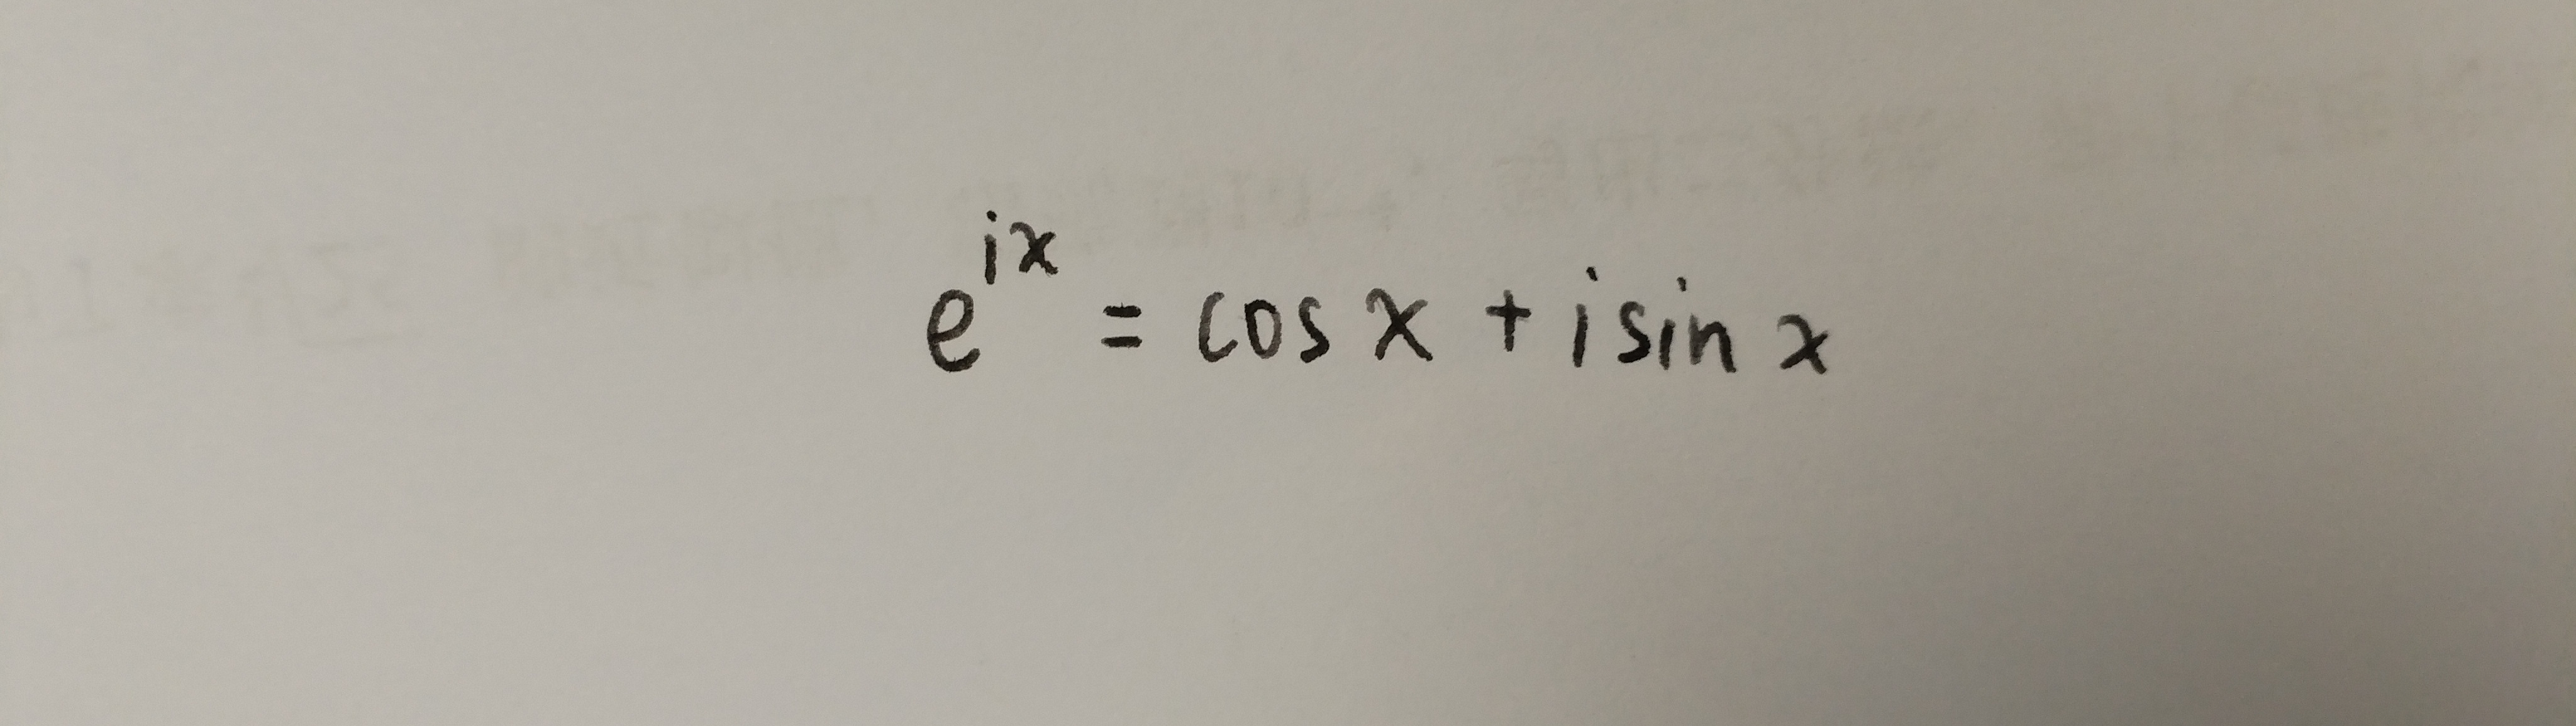 e^{ix} = cos x + i sin x